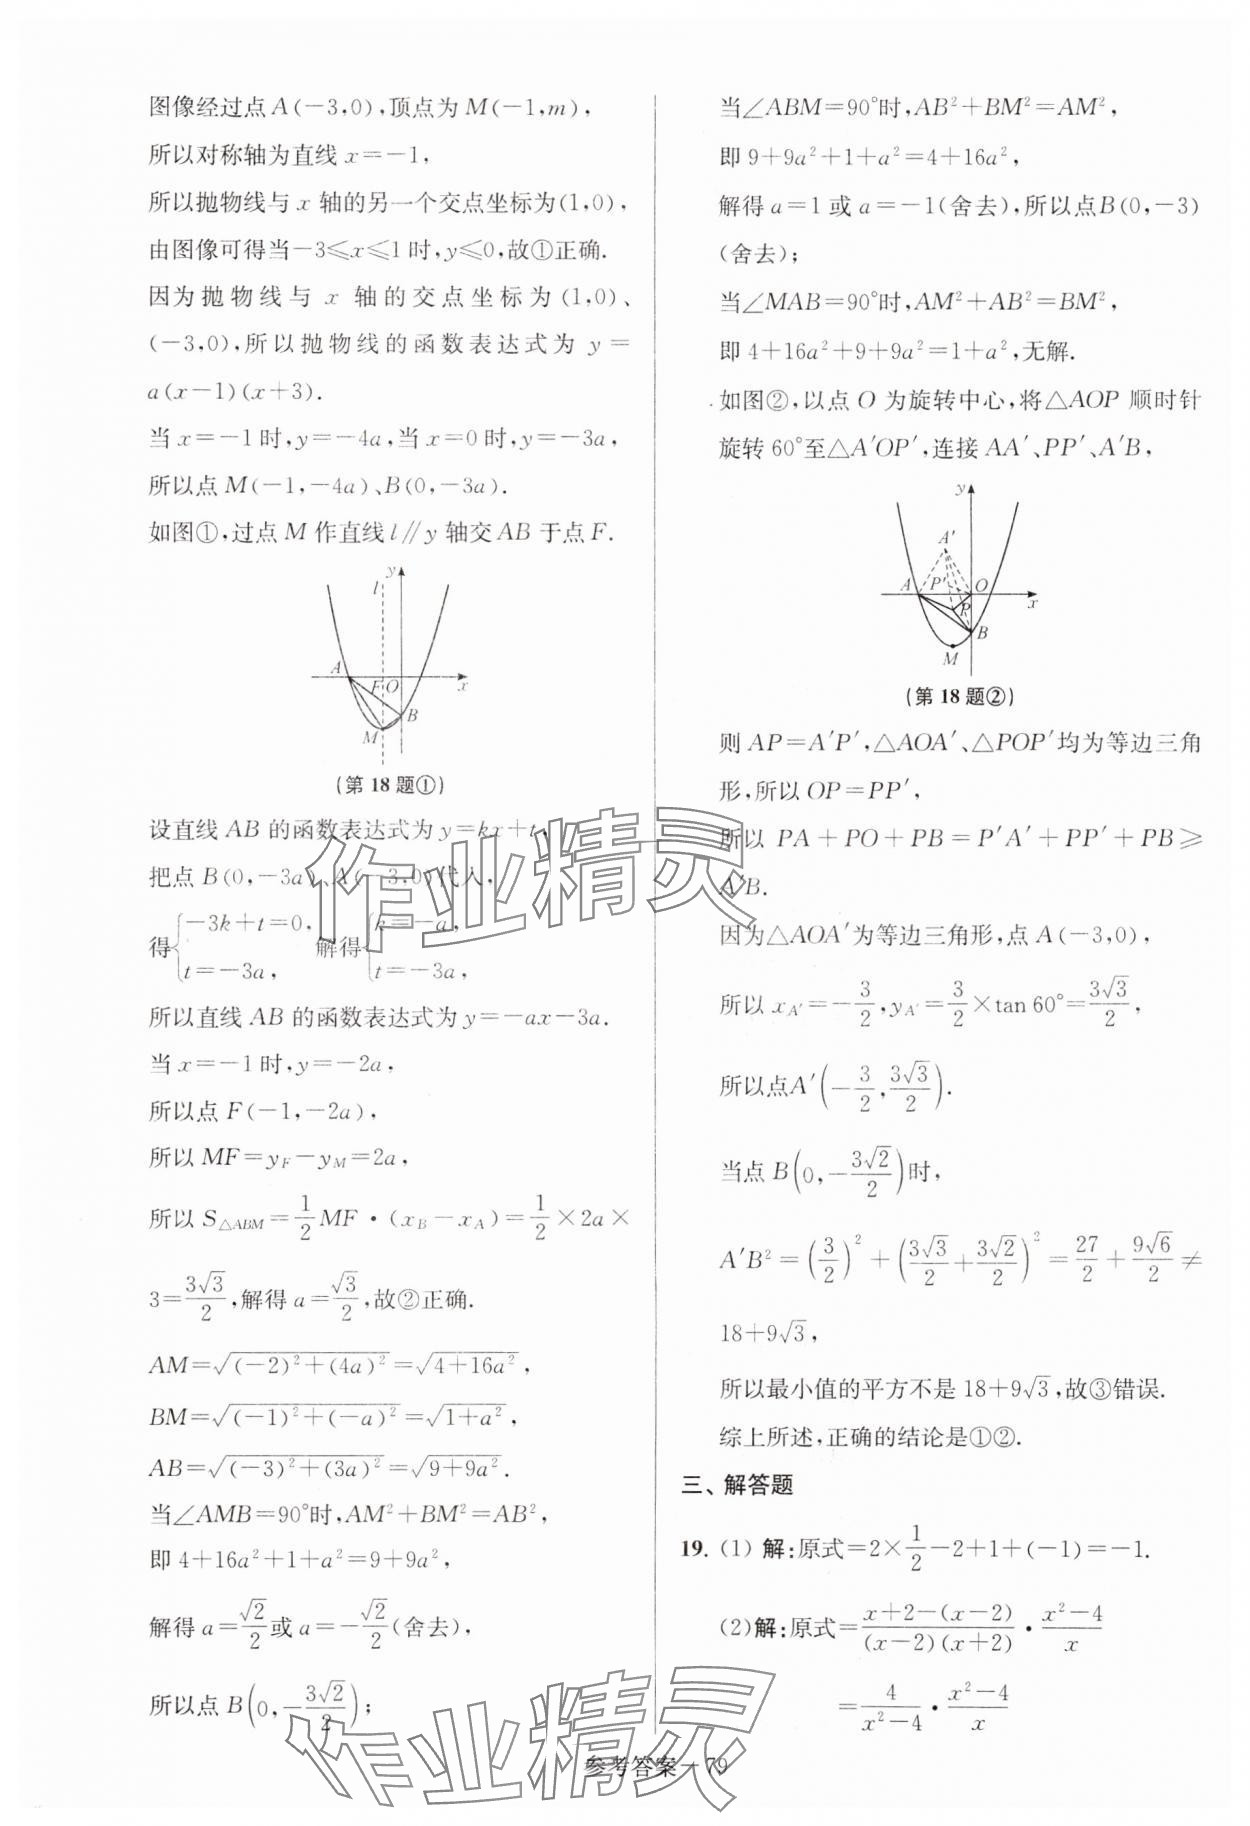 图像经过点 A(-3,0),顶点为 M(-1,m),
所以对称轴为直线 x=-1,
所以抛物线与 x 轴的另一个交点坐标为(1,0),
由图像可得当-3⩽x⩽1时,y⩽0,故①正确.
因为抛物线与 x 轴的交点坐标为(1,0)、
(-3,0),所以抛物线的函数表达式为 y=
a(x-1)(x+3).
当 x=-1时,y=-4a,当 x=0时,y=-3a,
所以点 M(-1,-4a)、B(0,-3a).
如图①,过点 M 作直线 l∥y 轴交 AB 于点 F.
y
l
A
F
O
x
B
M
(第18题①)
设直线 AB 的函数表达式为 y=kx+t,
把点 B(0,-3a)、A(-3,0)代入,
得{-3k+t=0, t=-3a, 解得{k=-a, t=-3a,
所以直线 AB 的函数表达式为 y=-ax-3a.
当 x=-1时,y=-2a,
所以点 F(-1,-2a),
所以 MF=y_F-y_M=2a,
所以 S_△ABM=1/2 MF·(x_B-x_A)=1/2×2a×
3=3√3/2,解得 a=√3/2,故②正确.
AM=√((-2)²+(4a)²)=√(4+16a²),
BM=√((-1)²+(-a)²)=√(1+a²),
AB=√((-3)²+(3a)²)=√(9+9a²).
当∠AMB=90°时,AM²+BM²=AB²,
即 4+16a²+1+a²=9+9a²,
解得 a=√2/2 或 a=-√2/2(舍去),
所以点 B(0,-3√2/2);
当∠ABM=90°时,AB²+BM²=AM²,
即 9+9a²+1+a²=4+16a²,
解得 a=1 或 a=-1(舍去),所以点B(0,-3)
(舍去);
当∠MAB=90°时,AM²+AB²=BM²,
即 4+16a²+9+9a²=1+a²,无解.
如图②,以点 O 为旋转中心,将△AOP 顺时针
旋转 60°至△A′OP′,连接 AA′、PP′、A′B,
y
A′
A
P′
O
x
P
B
M
(第18题②)
则 AP=A′P′,△AOA′、△POP′均为等边三角
形,所以 OP=PP′,
所以 PA+PO+PB=P′A′+PP′+PB⩾
A′B.
因为△AOA′为等边三角形,点 A(-3,0),
所以 x_A′=-3/2,y_A′=3/2×tan 60°=3√3/2,
所以点A′(-3/2,3√3/2).
当点 B(0,-3√2/2)时,
A′B²=(3/2)²+(3√3/2+3√2/2)²=27/2+9√6/2≠
18+9√3,
所以最小值的平方不是 18+9√3,故③错误.
综上所述,正确的结论是①②.
三、解答题
19. (1) 解:原式=2×1/2-2+1+(-1)=-1.
(2)解:原式=(x+2-(x-2))/((x-2)(x+2))·(x²-4)/x
=4/(x²-4)·(x²-4)/x
参考答案-79
作业精灵
作业精灵